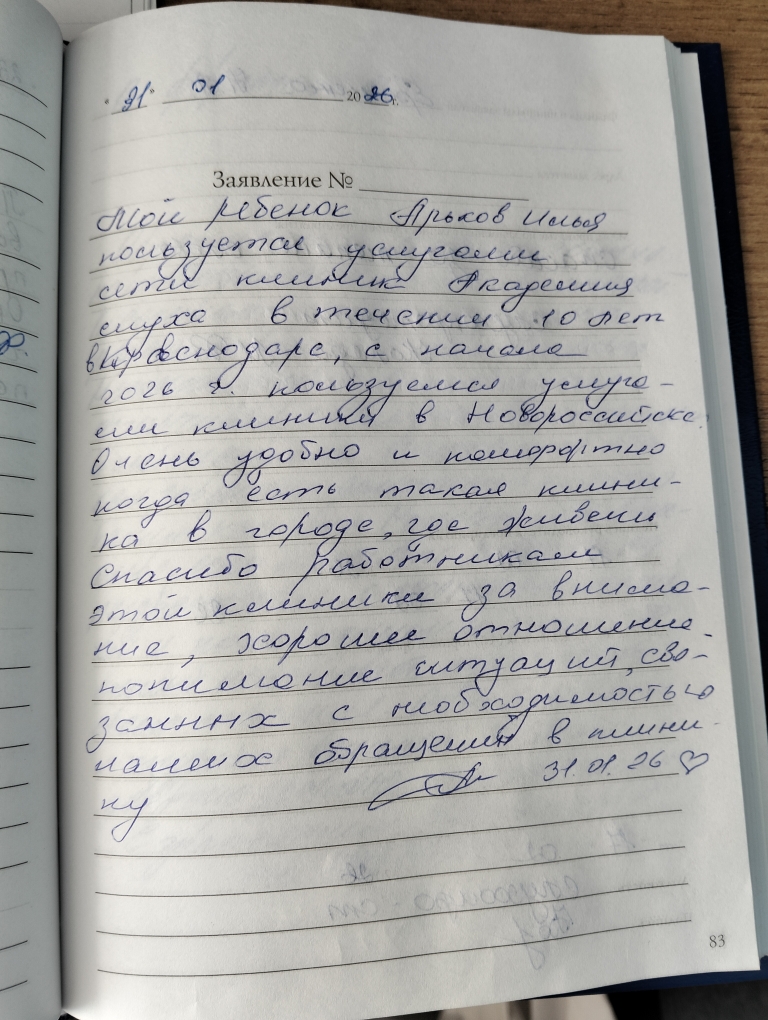 "31" 01 2026 г.
Заявление №
Мой ребенок Ярьков Илья
пользуется услугами
сети клиник Академия
слуха в течении 10 лет
в Краснодаре, с начала
2026 г. пользуемся услуга-
ми клиники в Новороссийске.
Очень удобно и комфортно
когда есть такая клини-
ка в городе, где живёшь
Спасибо работникам
этой клиники за внима-
ние, хорошее отношение,
понимание ситуаций, свя-
занных с необходимостью
наших обращений в клини-
ку
31.01.26
83